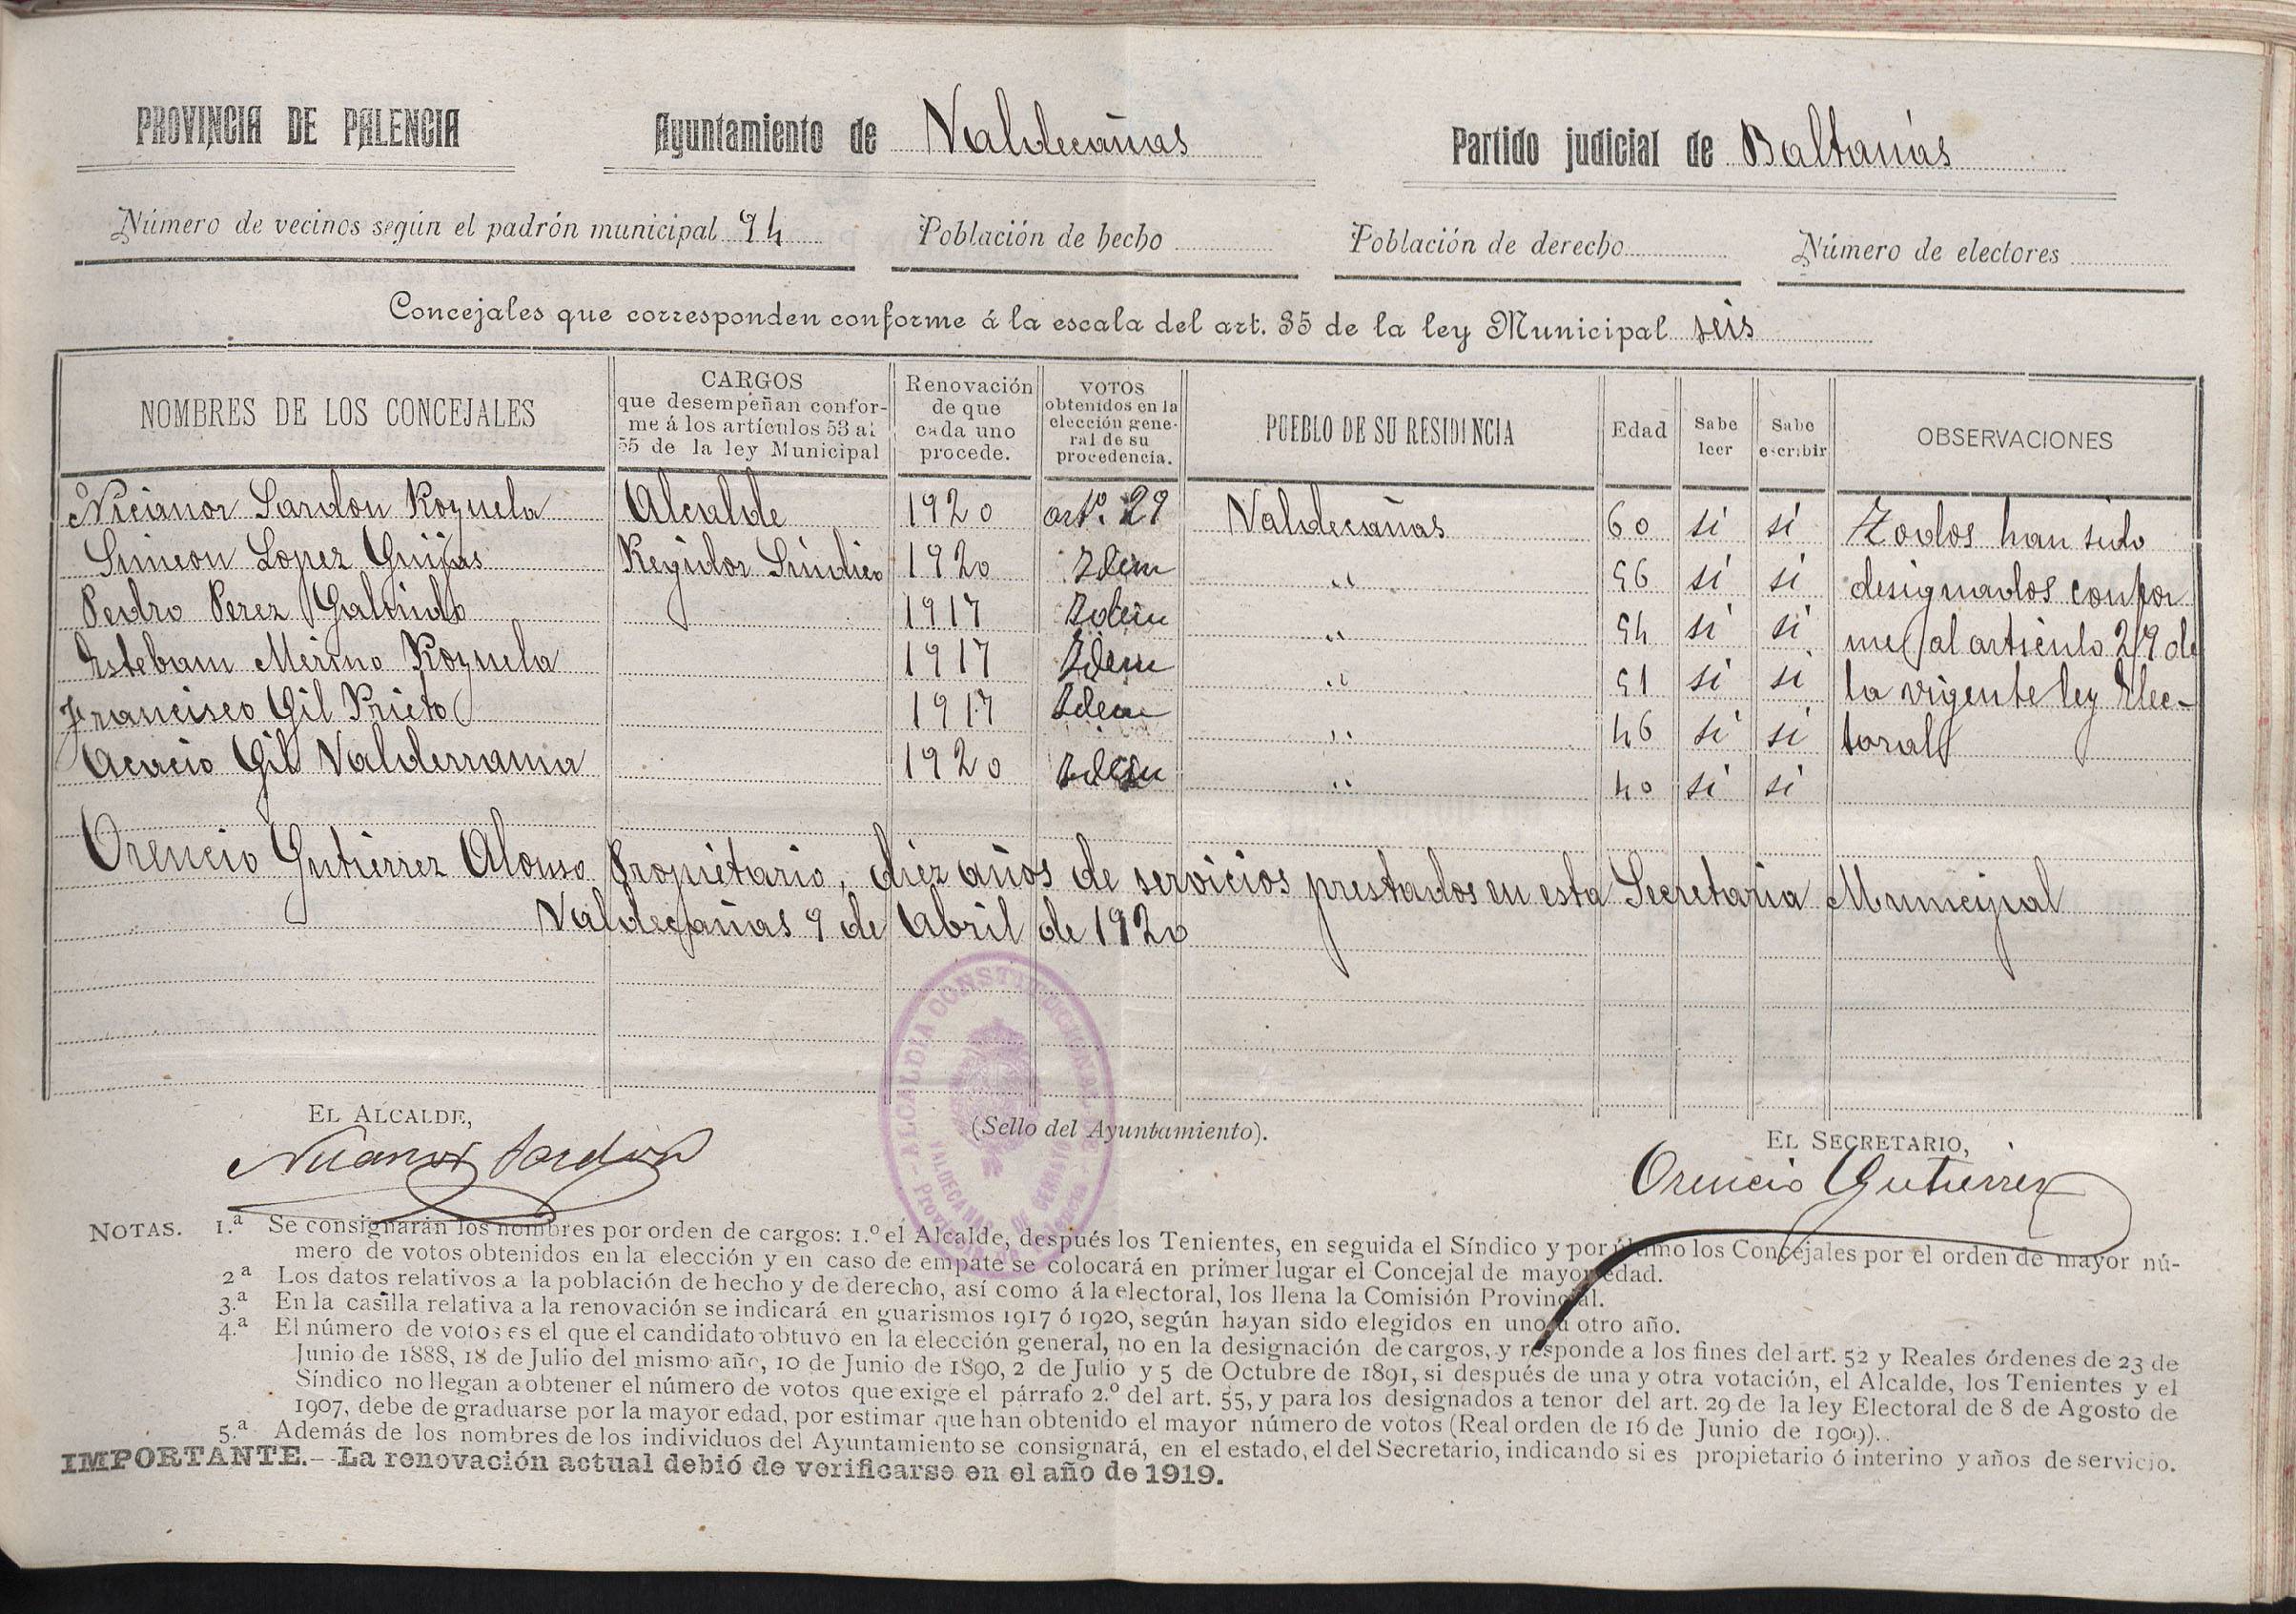 PROVINCIA DE PALENCIA Ayuntamiento de Valdecañas Partido judicial de Baltanás
Número de vecinos según el padrón municipal 94 Población de hecho Población de derecho Número de electores
Concejales que corresponden conforme á la escala del art. 35 de la ley Municipal seis
NOMBRES DE LOS CONCEJALES
CARGOS
que desempeñan confor-
me á los artículos 53 al
55 de la ley Municipal
Renovación
de que
cada uno
procede.
VOTOS
obtenidos en la
elección gene-
ral de su
procedencia.
PUEBLO DE SU RESIDENCIA
Edad
Sabe
leer
Sabe
escribir
OBSERVACIONES
Nicanor Sardon Rozuela Alcalde 1920 artº. 29 Valdecañas 60 si si Todos han sido
Simeon Lopez Guijas Regidor Sindico 1920 Idem " 56 si si designados confor
Pedro Perez Galindo 1917 Idem " 54 si si me al articulo 29 de
Esteban Merino Rozuela 1917 Idem " 51 si si la vigente ley Elec-
Francisco Gil Prieto 1917 Idem " 46 si si toral
Acacio Gil Valderrama 1920 Idem " 40 si si
Orencio Gutierrez Alonso Propietario, diez años de servicios prestados en esta Secretaria Municipal
Valdecañas 9 de Abril de 1920
ALCALDIA CONSTITUCIONAL DE
VALDECAÑAS DE CERRATO
Provincia de Palencia
EL ALCALDE,
Nicanor Sardon
(Sello del Ayuntamiento).
EL SECRETARIO,
Orencio Gutierrez
NOTAS. 1.ª Se consignarán los nombres por orden de cargos: 1.º el Alcalde, después los Tenientes, en seguida el Síndico y por último los Concejales por el orden de mayor nú-
mero de votos obtenidos en la elección y en caso de empate se colocará en primer lugar el Concejal de mayor edad.
2ª Los datos relativos a la población de hecho y de derecho, así como á la electoral, los llena la Comisión Provincial.
3.ª En la casilla relativa a la renovación se indicará en guarismos 1917 ó 1920, según hayan sido elegidos en uno ú otro año.
4.ª El número de votos es el que el candidato obtuvo en la elección general, no en la designación de cargos, y responde a los fines del art. 52 y Reales órdenes de 23 de
Junio de 1888, 18 de Julio del mismo año, 10 de Junio de 1890, 2 de Julio y 5 de Octubre de 1891, si después de una y otra votación, el Alcalde, los Tenientes y el
Síndico no llegan a obtener el número de votos que exige el párrafo 2.º del art. 55, y para los designados a tenor del art. 29 de la ley Electoral de 8 de Agosto de
1907, debe de graduarse por la mayor edad, por estimar que han obtenido el mayor número de votos (Real orden de 16 de Junio de 1909).
5.ª Además de los nombres de los individuos del Ayuntamiento se consignará, en el estado, el del Secretario, indicando si es propietario ó interino y años de servicio.
IMPORTANTE.--La renovación actual debió de verificarse en el año de 1919.